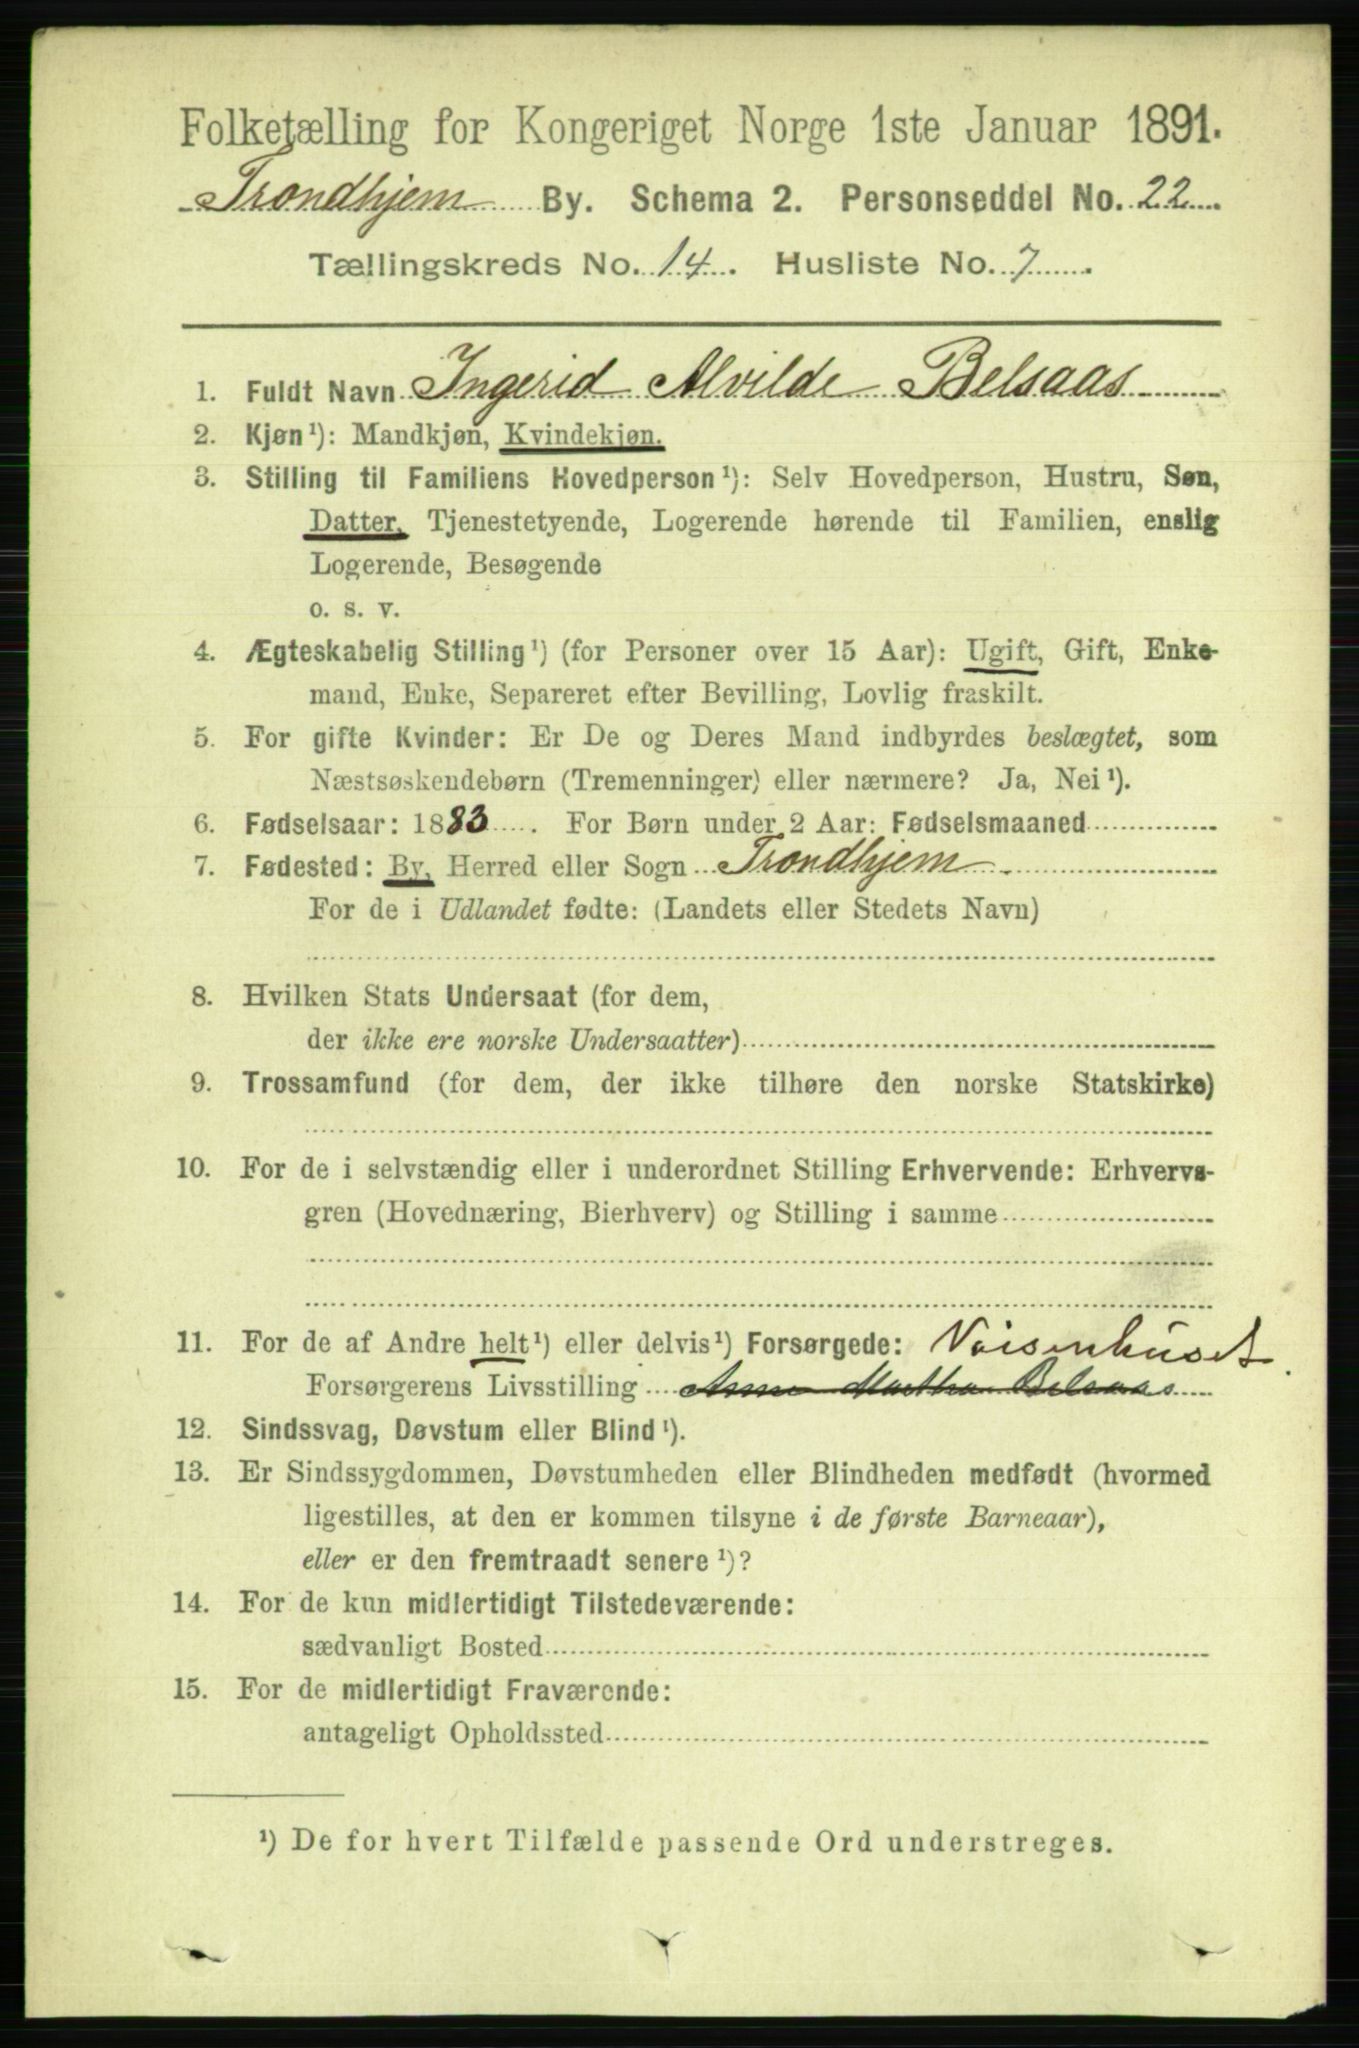 Folketælling for Kongeriget Norge 1ste Januar 1891.
Trondhjem By. Schema 2. Personseddel No. 22
Tællingskreds No. 14. Husliste No. 7.
1. Fuldt Navn Ingerid Alvilde Belsaas
2. Kjøn¹): Mandkjøn, Kvindekjøn.
3. Stilling til Familiens Hovedperson¹): Selv Hovedperson, Hustru, Søn,
Datter, Tjenestetyende, Logerende hørende til Familien, enslig
Logerende, Besøgende
o. s. v.
4. Ægteskabelig Stilling¹) (for Personer over 15 Aar): Ugift, Gift, Enke-
mand, Enke, Separeret efter Bevilling, Lovlig fraskilt.
5. For gifte Kvinder: Er De og Deres Mand indbyrdes beslægtet, som
Næstsøskendebørn (Tremenninger) eller nærmere? Ja, Nei¹).
6. Fødselsaar: 1883. For Børn under 2 Aar: Fødselsmaaned
7. Fødested: By, Herred eller Sogn Trondhjem.
For de i Udlandet fødte: (Landets eller Stedets Navn)
8. Hvilken Stats Undersaat (for dem,
der ikke ere norske Undersaatter)
9. Trossamfund (for dem, der ikke tilhøre den norske Statskirke)
10. For de i selvstændig eller i underordnet Stilling Erhvervende: Erhvervs-
gren (Hovednæring, Bierhverv) og Stilling i samme
11. For de af Andre helt¹) eller delvis¹) Forsørgede: Vaisenhuset
Forsørgerens Livsstilling Anne Martha Belsaas
12. Sindssvag, Døvstum eller Blind¹).
13. Er Sindssygdommen, Døvstumheden eller Blindheden medfødt (hvormed
ligestilles, at den er kommen tilsyne i de første Barneaar),
eller er den fremtraadt senere¹)?
14. For de kun midlertidigt Tilstedeværende:
sædvanligt Bosted
15. For de midlertidigt Fraværende:
antageligt Opholdssted
¹) De for hvert Tilfælde passende Ord understreges.